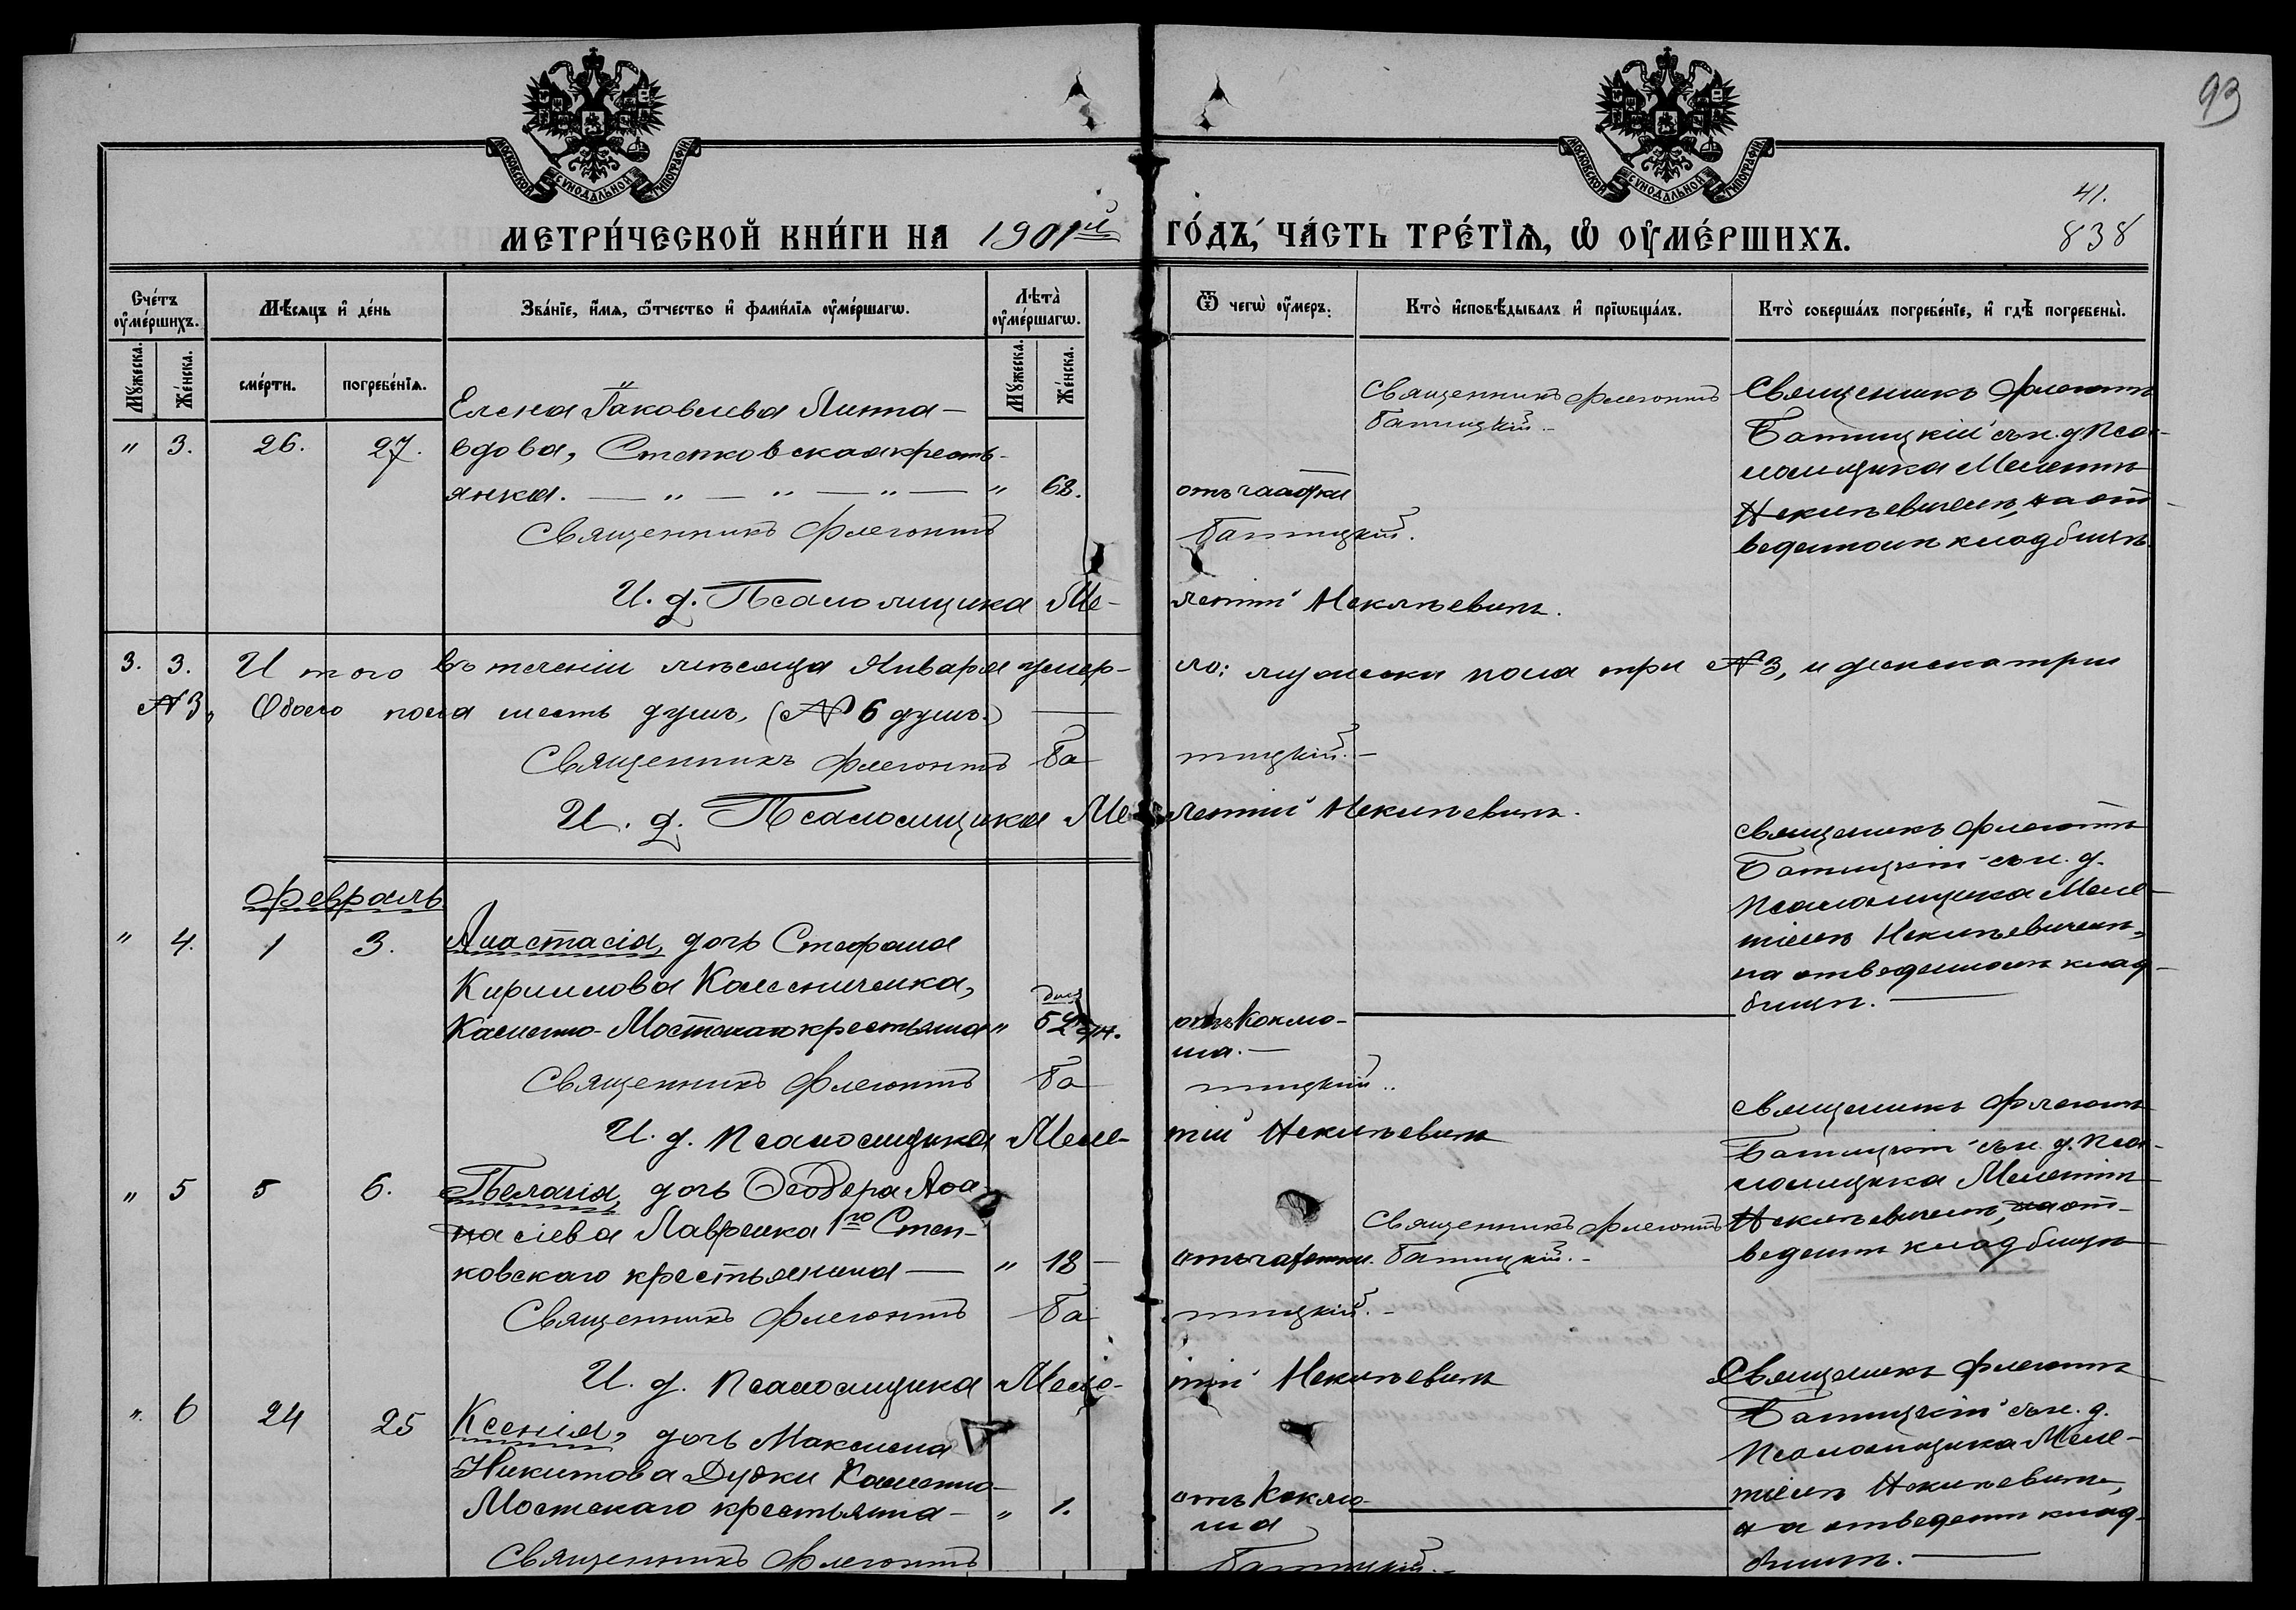 93
МОСКОВСКОЙ СУНОДАЛЬНОЙ ТИПОГРАФІИ
МОСКОВСКОЙ СУНОДАЛЬНОЙ ТИПОГРАФІИ
41.
838
МЕТРИ́ЧЕСКОЙ КНИ́ГИ НА 1901й ГО́ДЪ, ЧА́СТЬ ТРЕ́ТІѦ, Ѡ ОУМЕ́РШИХЪ.
Сче́тъ оуме́ршихъ.
Мѣ́сѧцъ и де́нь
Зва́ніе, и́мѧ, ѻ́тчество и фами́лїѧ оуме́ршагѡ.
Лѣта̀ оуме́ршагѡ.
Ѿ чегѡ̀ оу́меръ.
Кто̀ и҆сповѣ́дывалъ и҆ прїѡбща́лъ.
Кто̀ соверша́лъ погребе́нїе, и҆ гдѣ̀ погребены̀.
Мꙋ́жеска.
Же́нска.
сме́рти.
погребе́нїѧ.
Мꙋ́жеска.
Же́нска.
Елена Іаковлева Липпа-
" 3. 26. 27. вдова, Степковская кресть-
янка. — " — " — " — " 68.
Священникъ Флегонтъ
Батицкій.
Священникъ Флегонтъ
Батицкій съ и. д. Пса-
ломщика Мелетіем
Некилевичемъ, на от-
веденномъ кладбищѣ.
Священникъ Флегонтъ Батицкій.
И. д. Псаломщика Мелетій Некилевичъ.
3. 3. Итого въ теченіи мѣсяца Января умерло: мужеска пола три №3, и женска три
№3, Обоего пола шесть душъ, (№ 6 душъ.)
Священникъ Флегонтъ Батицкій.
И. д. Псаломщика Мелетій Некилевичъ.
Февраль.
" 4. 1 3. Анастасія, дочь Стефана
Кирилова Калениченка,
Каменно-Мостскаго крестьянина " 5
отъ Коклю-
ша. —
Священникъ Флегонтъ
Батицкій съ и. д.
Псаломщика Меле-
тіемъ Некилевичемъ,
на отведенномъ клад-
бищѣ. —
Священникъ Флегонтъ Батицкій.
И. д. Псаломщика Мелетій Некилевичъ
" 5 5 6. Пелагія, дочь Ѳеодора Аѳа-
насіева Лавренка 1го Степ-
ковскаго крестьянина — " 18 —
отъ чахотки.
Священникъ Флегонтъ
Батицкій.
Священникъ Флегонтъ
Батицкій съ и. д. Пса-
ломщика Мелетіем
Некилевичемъ, на от-
веденн кладбищѣ
Священникъ Флегонтъ Батицкій.
И. д. Псаломщика Мелетій Некилевичъ
". 6 24 25 Ксенія, дочь Максима
Никитова Дудки Каменно-
Мостскаго крестьянина — " 1.
отъ Коклю-
ша
Священникъ Флегонтъ
Батицкій съ и. д.
Псаломщика Меле-
тіемъ Некилевичем,
на отведенн клад-
бищѣ. —
Священникъ Флегонтъ Батицкій.